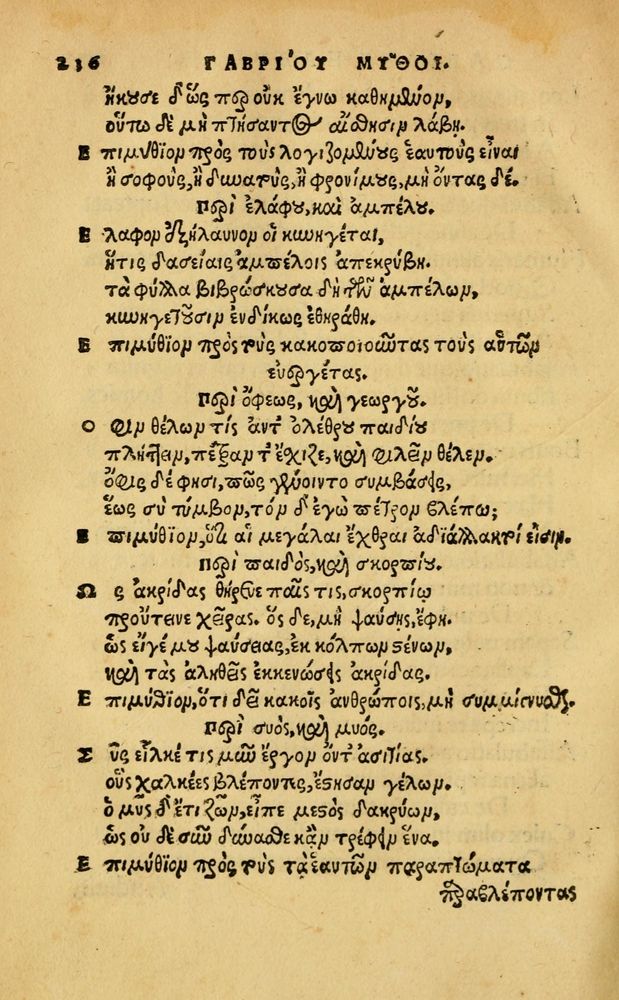 236 ΓΑΒΡΙΟΥ ΜΥΘΟΙ.
ἤκουσε δ' ὡς περ οὐκ ἔγνω καθημένον,
οὕτω δὲ μὴ πτήσαντος αἴσθησιν λάβῃ.
Επιμύθιον πρὸς τοὺς λογιζομένους ἑαυτοὺς εἶναι
ἢ σοφοὺς, ἢ δυνατοὺς, ἢ φρονίμους, μὴ ὄντας δέ.
Περὶ ἐλάφου, καὶ ἀμπέλου.
Ελαφον ἐξήλαυνον οἱ κυνηγέται,
ἥτις δασείαις ἀμπέλοις ἀπεκρύβη.
τὰ φύλλα βιβρώσκουσα δὴ τῶν ἀμπέλων,
κυνηγετοῦσιν ἐνδίκως ἐθηράθη.
Επιμύθιον πρὸς τοὺς κακοποιοῦντας τοὺς αὐτῶν
εὐεργέτας.
Περὶ ὄφεως, καὶ γεωργοῦ.
Οφιν θέλων τίς ἀντ' ὀλέθρου παιδίου
πλήττειν, πέτραν τ' ἔσχιζε, καὶ φιλεῖν θέλεν.
ὄφις δέ φησι, πῶς γένοιντο συμβάσεις,
ἕως σὺ τύμβον, τὸν δ' ἐγὼ πέτρον βλέπω;
Επιμύθιον, ὅτι αἱ μεγάλαι ἔχθραι ἀδιάλλακτοί εἰσιν.
Περὶ παιδὸς, καὶ σκορπίου.
Ως ἀκρίδας θήρευε παῖς τις, σκορπίῳ
προὔτεινε χεῖρας. ὃς δὲ, μὴ ψαύσῃς, ἔφη.
ὡς εἴγέ μου ψαύσειας, ἐκ κόλπων ξένων,
καὶ τὰς ἀληθεῖς ἐκκενώσεις ἀκρίδας.
Επιμύθιον, ὅτι δεῖ κακοῖς ἀνθρώποις, μὴ συμμίγνυσθαι.
Περὶ συὸς, καὶ μυός.
Σῦς εἷλκέ τις μῦν ἔργον ὄντ' ἀσιτίας.
οὓς χαλκέες βλέποντες, ἔστησαν γέλων.
ὁ μῦς δ' ἔτι ζῶν, εἶπε μεστὸς δακρύων,
ὡς οὐδὲ σῦν δύνασθε κἂν τρέφειν ἕνα.
Επιμύθιον πρὸς τοὺς τὰ ἑαυτῶν παραπτώματα
παραβλέποντας